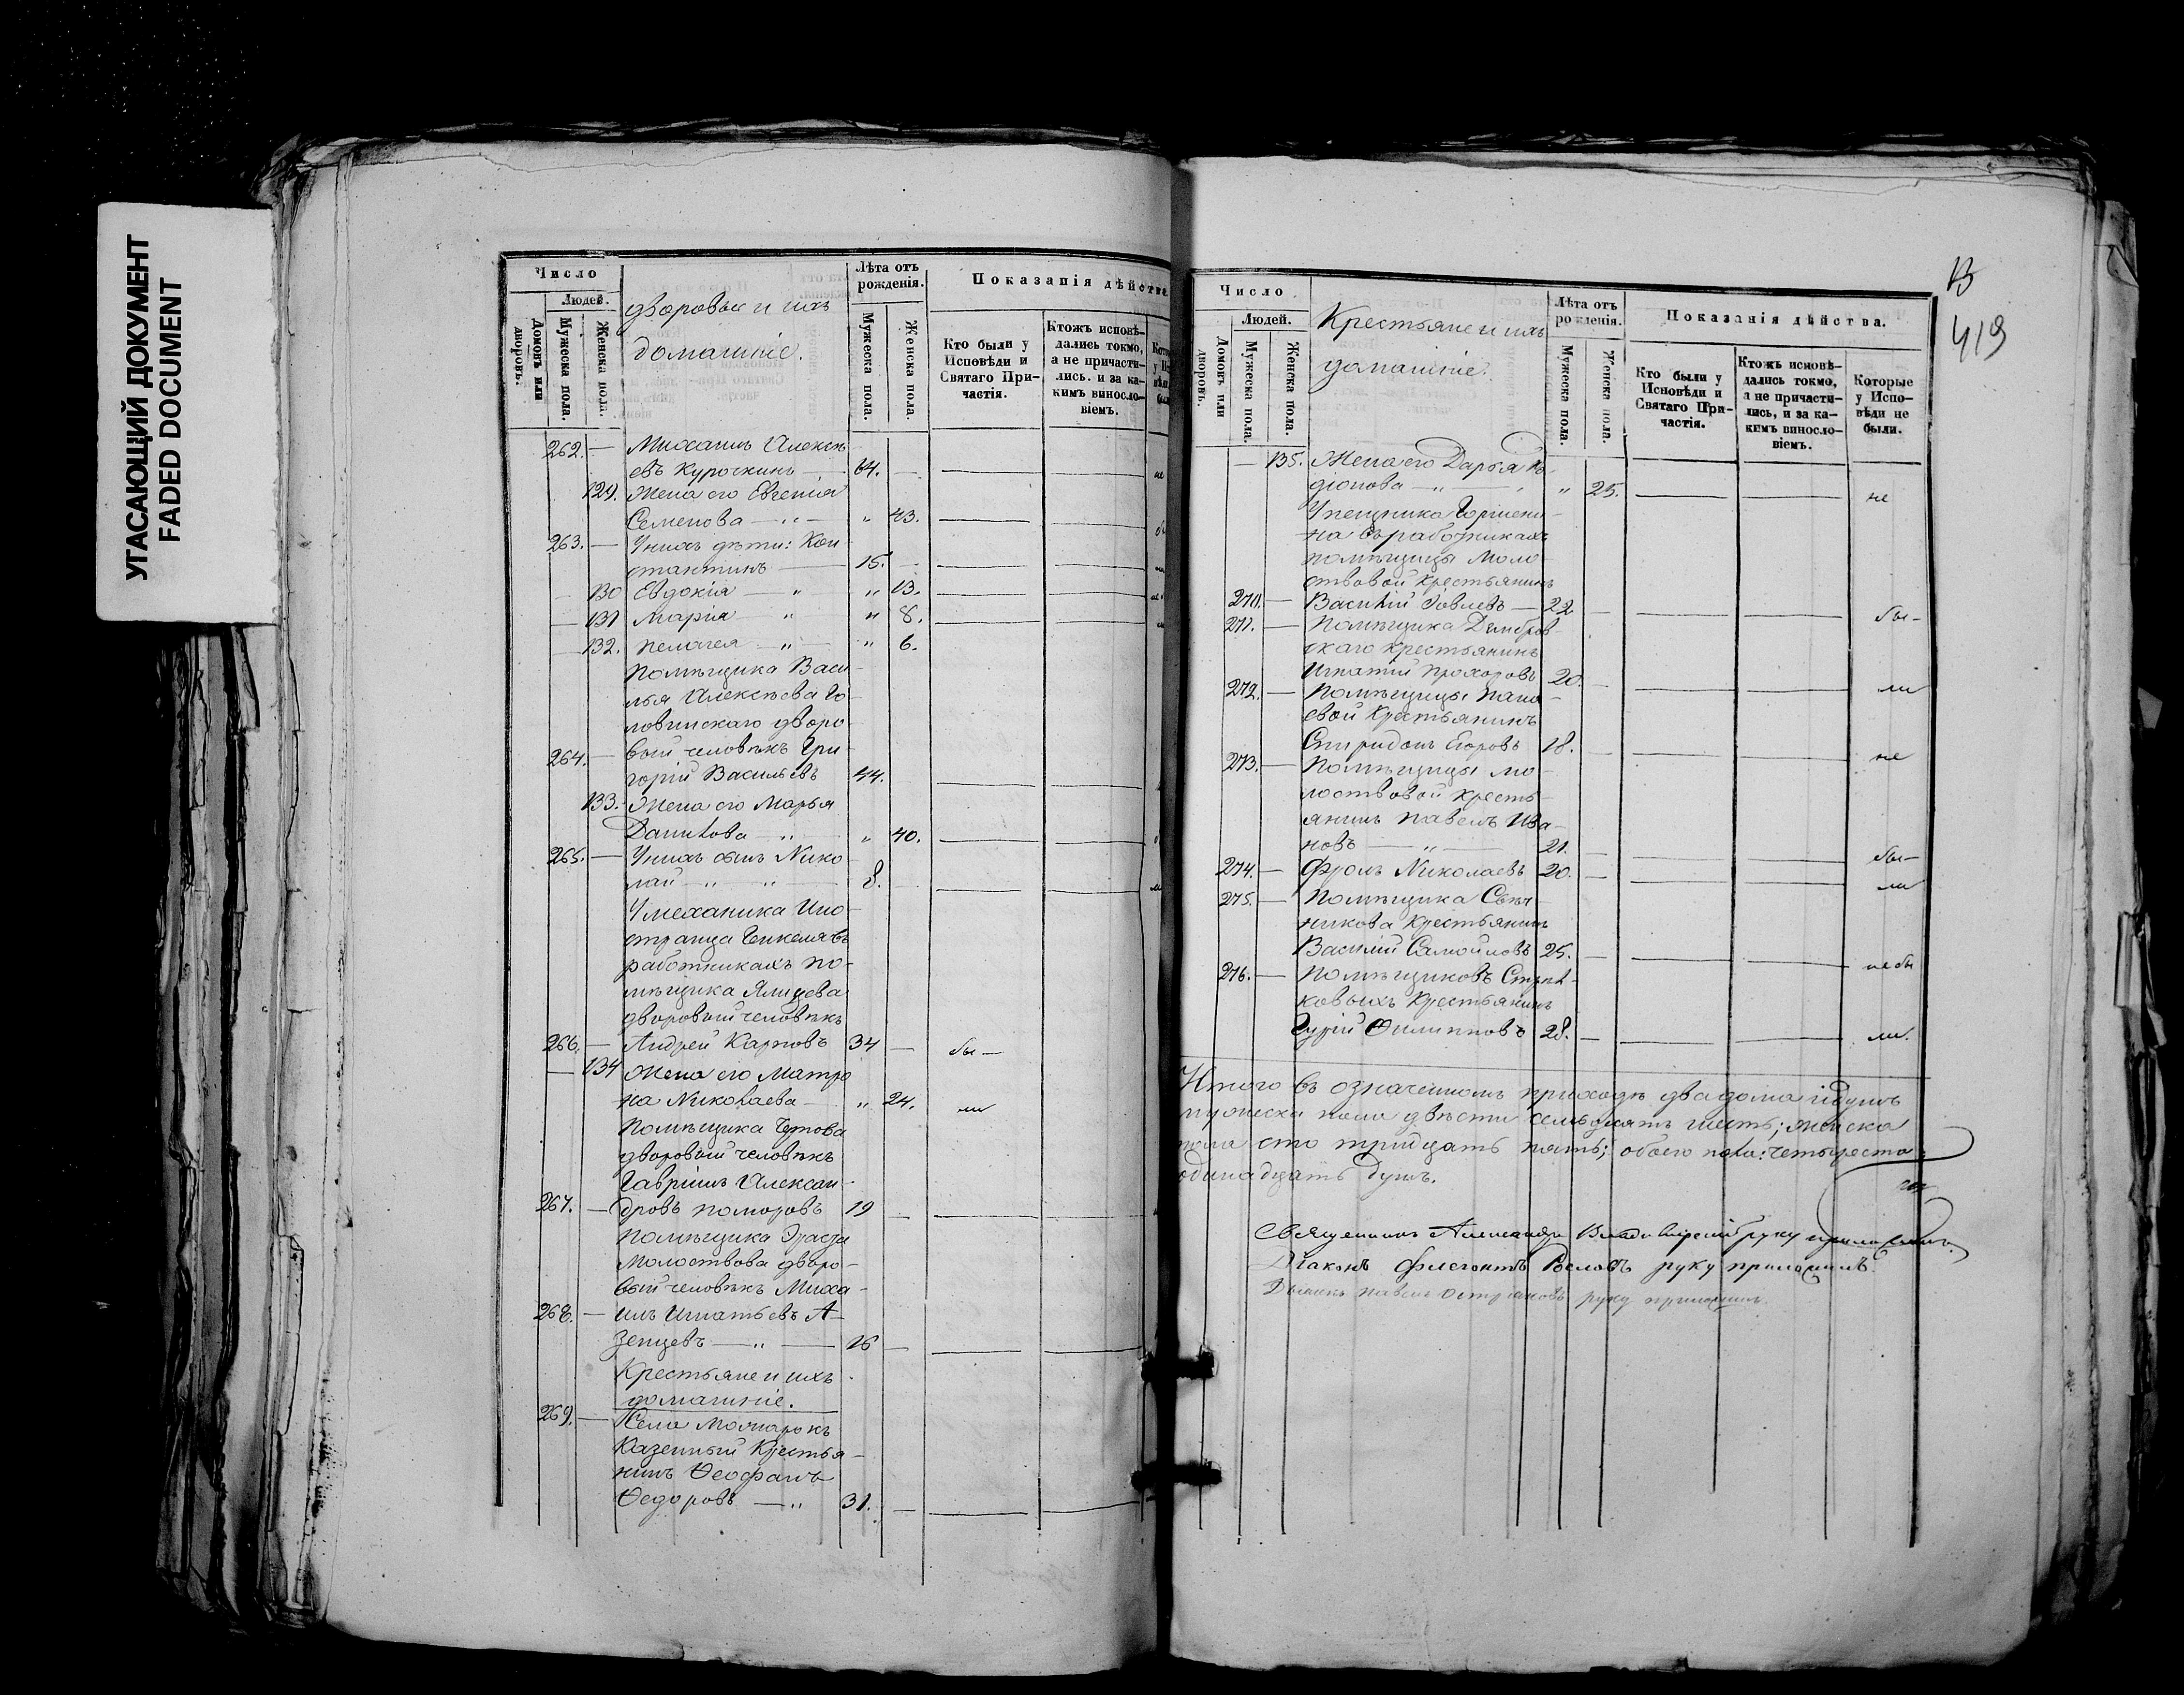 УГАСАЮЩИЙ ДОКУМЕНТ
FADED DOCUMENT
Число
Людей.
Домовъ или дворовъ.
Мужеска пола.
Женска пола.
дворовые и ихъ
домашніе.
Лѣта отъ
рожденія.
Мужеска пола.
Женска пола.
Показанія дѣйства
Кто были у
Исповѣди и
Святаго При-
частія.
Ктожъ исповѣ-
дались токмо,
а не причасти-
лись. и за ка-
кимъ виносло-
віемъ.
262. — Михаилъ Алексѣ
евъ Курочкинъ — 64. —
129. Жена его Евгенія
Семенова — „ — „ 43.
263. — У нихъ дѣти: Кон-
стантинъ — 15. —
— 130 Евдокія — „ „ 13.
— 131 Марія — „ „ 8.
— 132. Пелагея — „ „ 6.
Помѣщика Васи-
лья Алексѣева Го-
ловинскаго дворо-
264. — вый человѣкъ Гри-
горій Васильевъ 44.
133. Жена его Марья
Данилова — „ „ 40.
265. — У нихъ сынъ Нико-
лай — „ — „ — 8.
У механика Ино-
странца въ
работникахъ по-
мѣщика
дворовый человѣкъ
266. — Андрей Карповъ 34 — бы —
— 134 Жена его Матро
на Николаева — „ 24. ли
Помѣщика
дворовый человѣкъ
Гавріилъ Алексан-
267. — дровъ Поморовъ 19 —
Помѣщика Эраста
Молоствова дворо-
вый человѣкъ Миха-
268. — илъ Игнатьевъ А-
зенцевъ — „ — 26 —
Крестьяне и ихъ
домашніе.
269. — Села Можарокъ
Казенный Крестья-
нинъ Ѳеофанъ
Ѳедоровъ — „ 31. —
13
419
Число
Людей.
Домовъ или дворовъ.
Мужеска пола.
Женска пола.
Крестьяне и ихъ
домашніе.
Лѣта отъ
рожденія.
Мужеска пола.
Женска пола.
Показанія дѣйства.
Кто были у
Исповѣди и
Святаго При-
частія.
Ктожъ исповѣ-
дались токмо,
а не причасти-
лись, и за ка-
кимъ виносло-
віемъ.
Которые
у Испо-
вѣди не
были.
— 135. Жена его Дарья Ро-
діонова — „ — „ 25. не
У
на въ работникахъ
помѣщицы Моло
ствовой крестьянинъ
270. — Василій Іовлевъ — 22 — бы —
271. — Помѣщика Дембров-
скаго крестьянинъ
Игнатій Прохоровъ 20. — ли
272. — Помѣщицы
евой Крестьянинъ
Спиридонъ Егоровъ 18. — не
273. — Помѣщицы Мо-
лоствовой кресть-
янинъ Павелъ Ива-
новъ — „ — 21. — бы —
274. — Фролъ Николаевъ 20. — ли
275. — Помѣщика
никова Крестьянинъ
Василій Самойловъ 25. — не бы
276. — Помѣщиковъ Стрѣл-
ковыхъ Крестьянинъ
Гурій Филипповъ 28. — ли.
Итого въ означенномъ приходѣ два дома и душъ
мужеска пола двѣсти семьдесятъ шесть; женска
пола сто тридцать пять; обоего пола: четыреста
одинадцать душъ.
Священникъ Александръ Владимірскій руку приложилъ.
Діаконъ Флегонтъ Бѣловъ руку приложилъ.
Дьячекъ Павелъ руку приложилъ.